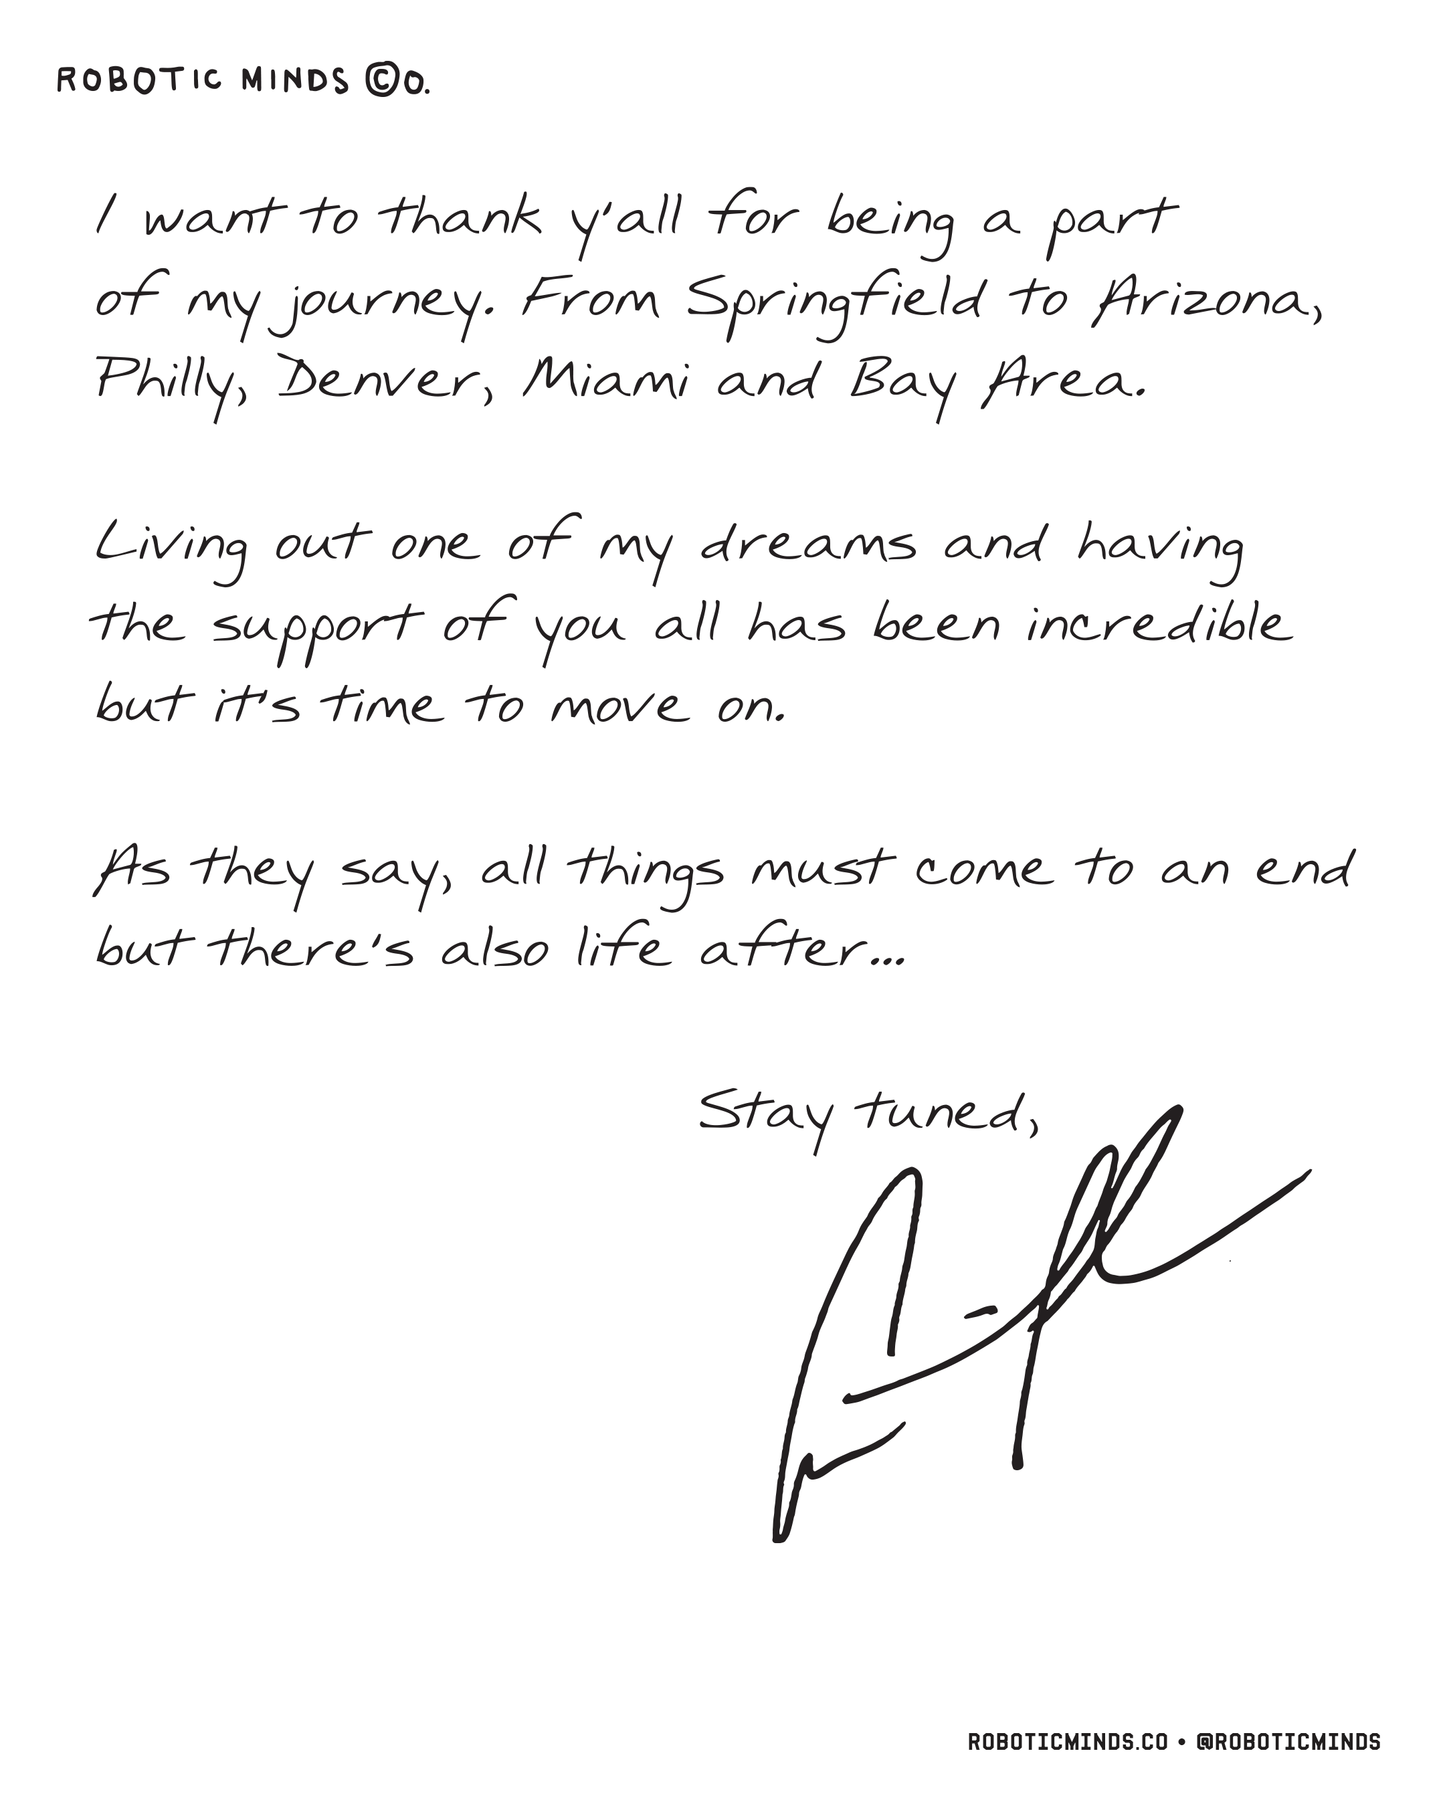 ROBOTIC MINDS ©O.
I want to thank y'all for being a part
of my journey. From Springfield to Arizona,
Philly, Denver, Miami and Bay Area.
Living out one of my dreams and having
the support of you all has been incredible
but it's time to move on.
As they say, all things must come to an end
but there's also life after...
Stay tuned,
ROBOTICMINDS.CO • @ROBOTICMINDS